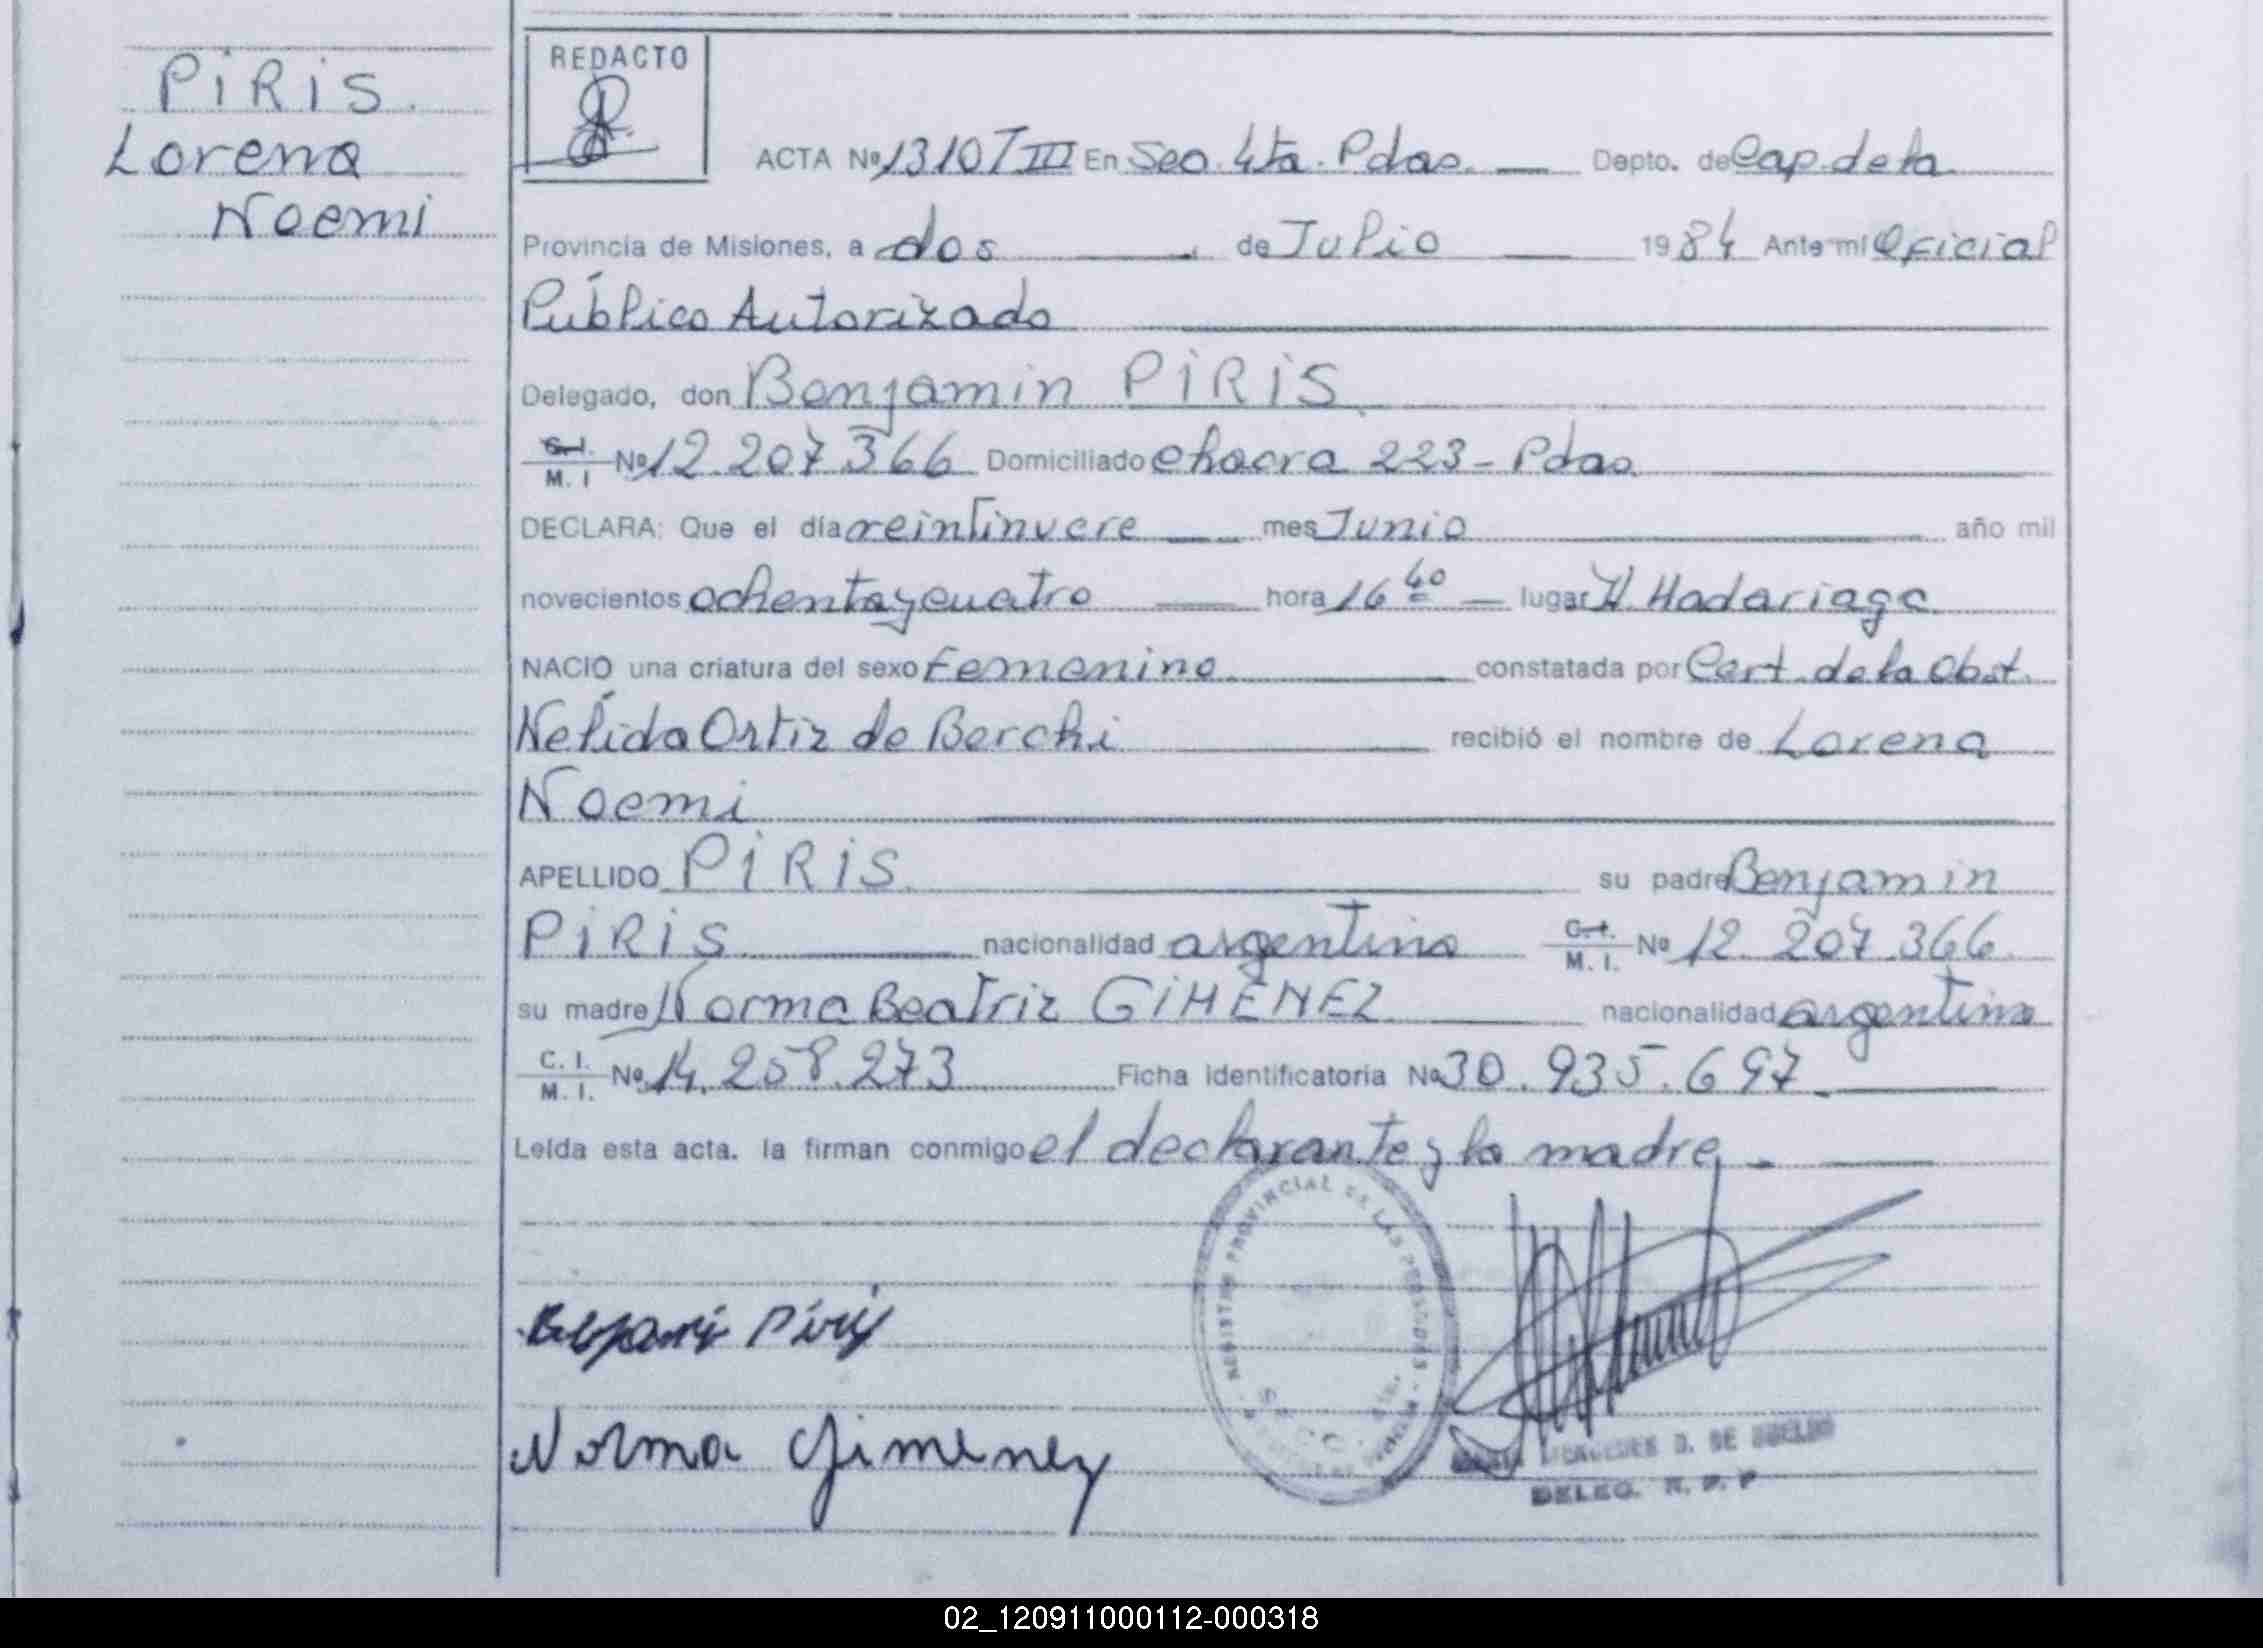 PIRIS.
Lorena
Noemi
REDACTO
ACTA Nº 1310 T III En Sec. 4ta. Pdas. Depto. de Cap. de la
Provincia de Misiones, a dos de Julio 1984 Ante mi Oficial
Público Autorizado
Delegado, don Benjamin PIRIS.
C.I. M. I Nº 12.207.366 Domiciliado chacra 223 - Pdas.
DECLARA: Que el día veintinueve mes Junio año mil
novecientos ochenta y cuatro hora 16 40 lugar H. Madariaga
NACIO una criatura del sexo Femenino constatada por Cert. de la Obst.
Nélida Ortiz de Berchi recibió el nombre de Lorena
Noemi
APELLIDO PIRIS. su padre Benjamin
PIRIS nacionalidad argentina C.I. M. I. Nº 12.207.366.
su madre Norma Beatriz GIMENEZ nacionalidad argentina
C. I. M. I. Nº 14.258.273 Ficha Identificatoria Nº 30.935.697
Leída esta acta. la firman conmigo el declarante y la madre.-
REGISTRO PROVINCIAL DE LAS PERSONAS
SECC.
Piris
Norma Gimenez
MERCEDES D. DE
DELEG. R. P. P
02_120911000112-000318